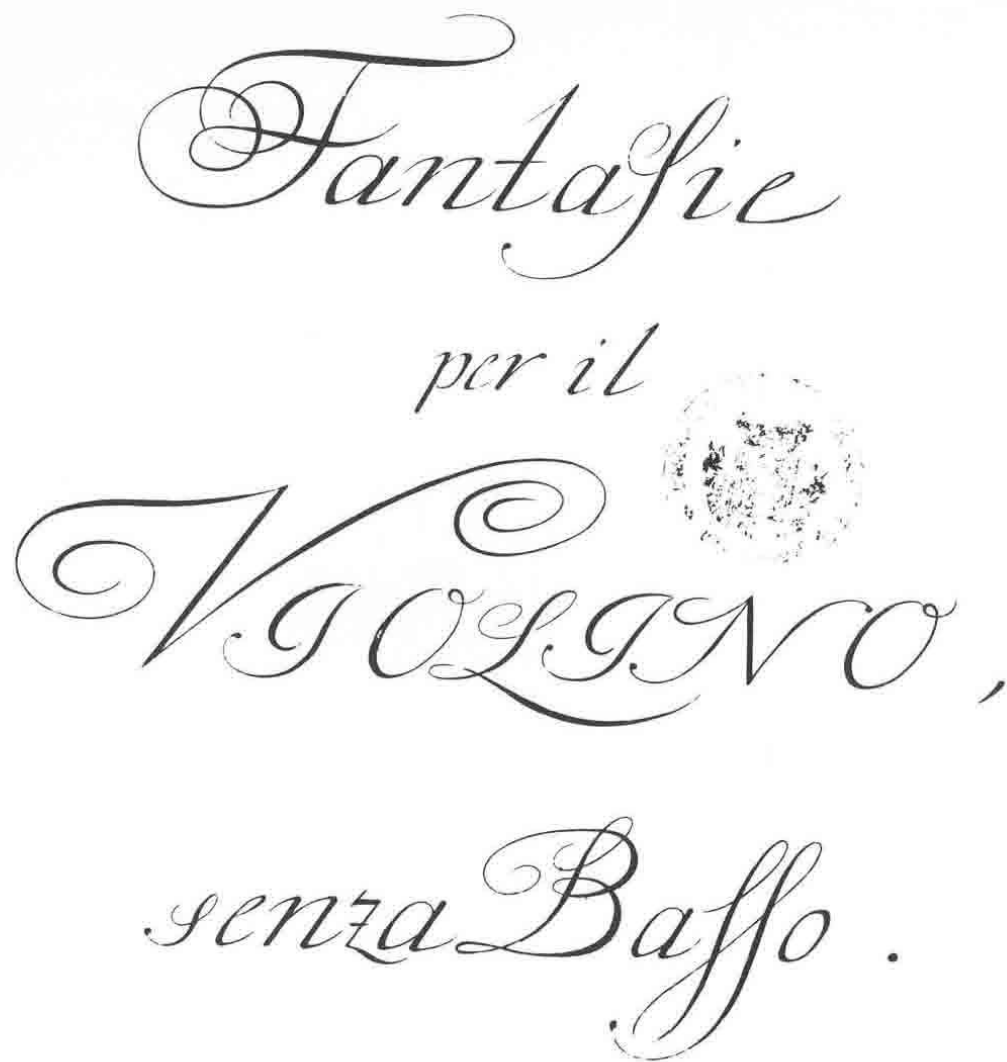 Fantaſie
per il
VIOLINO,
senza Baſſo.